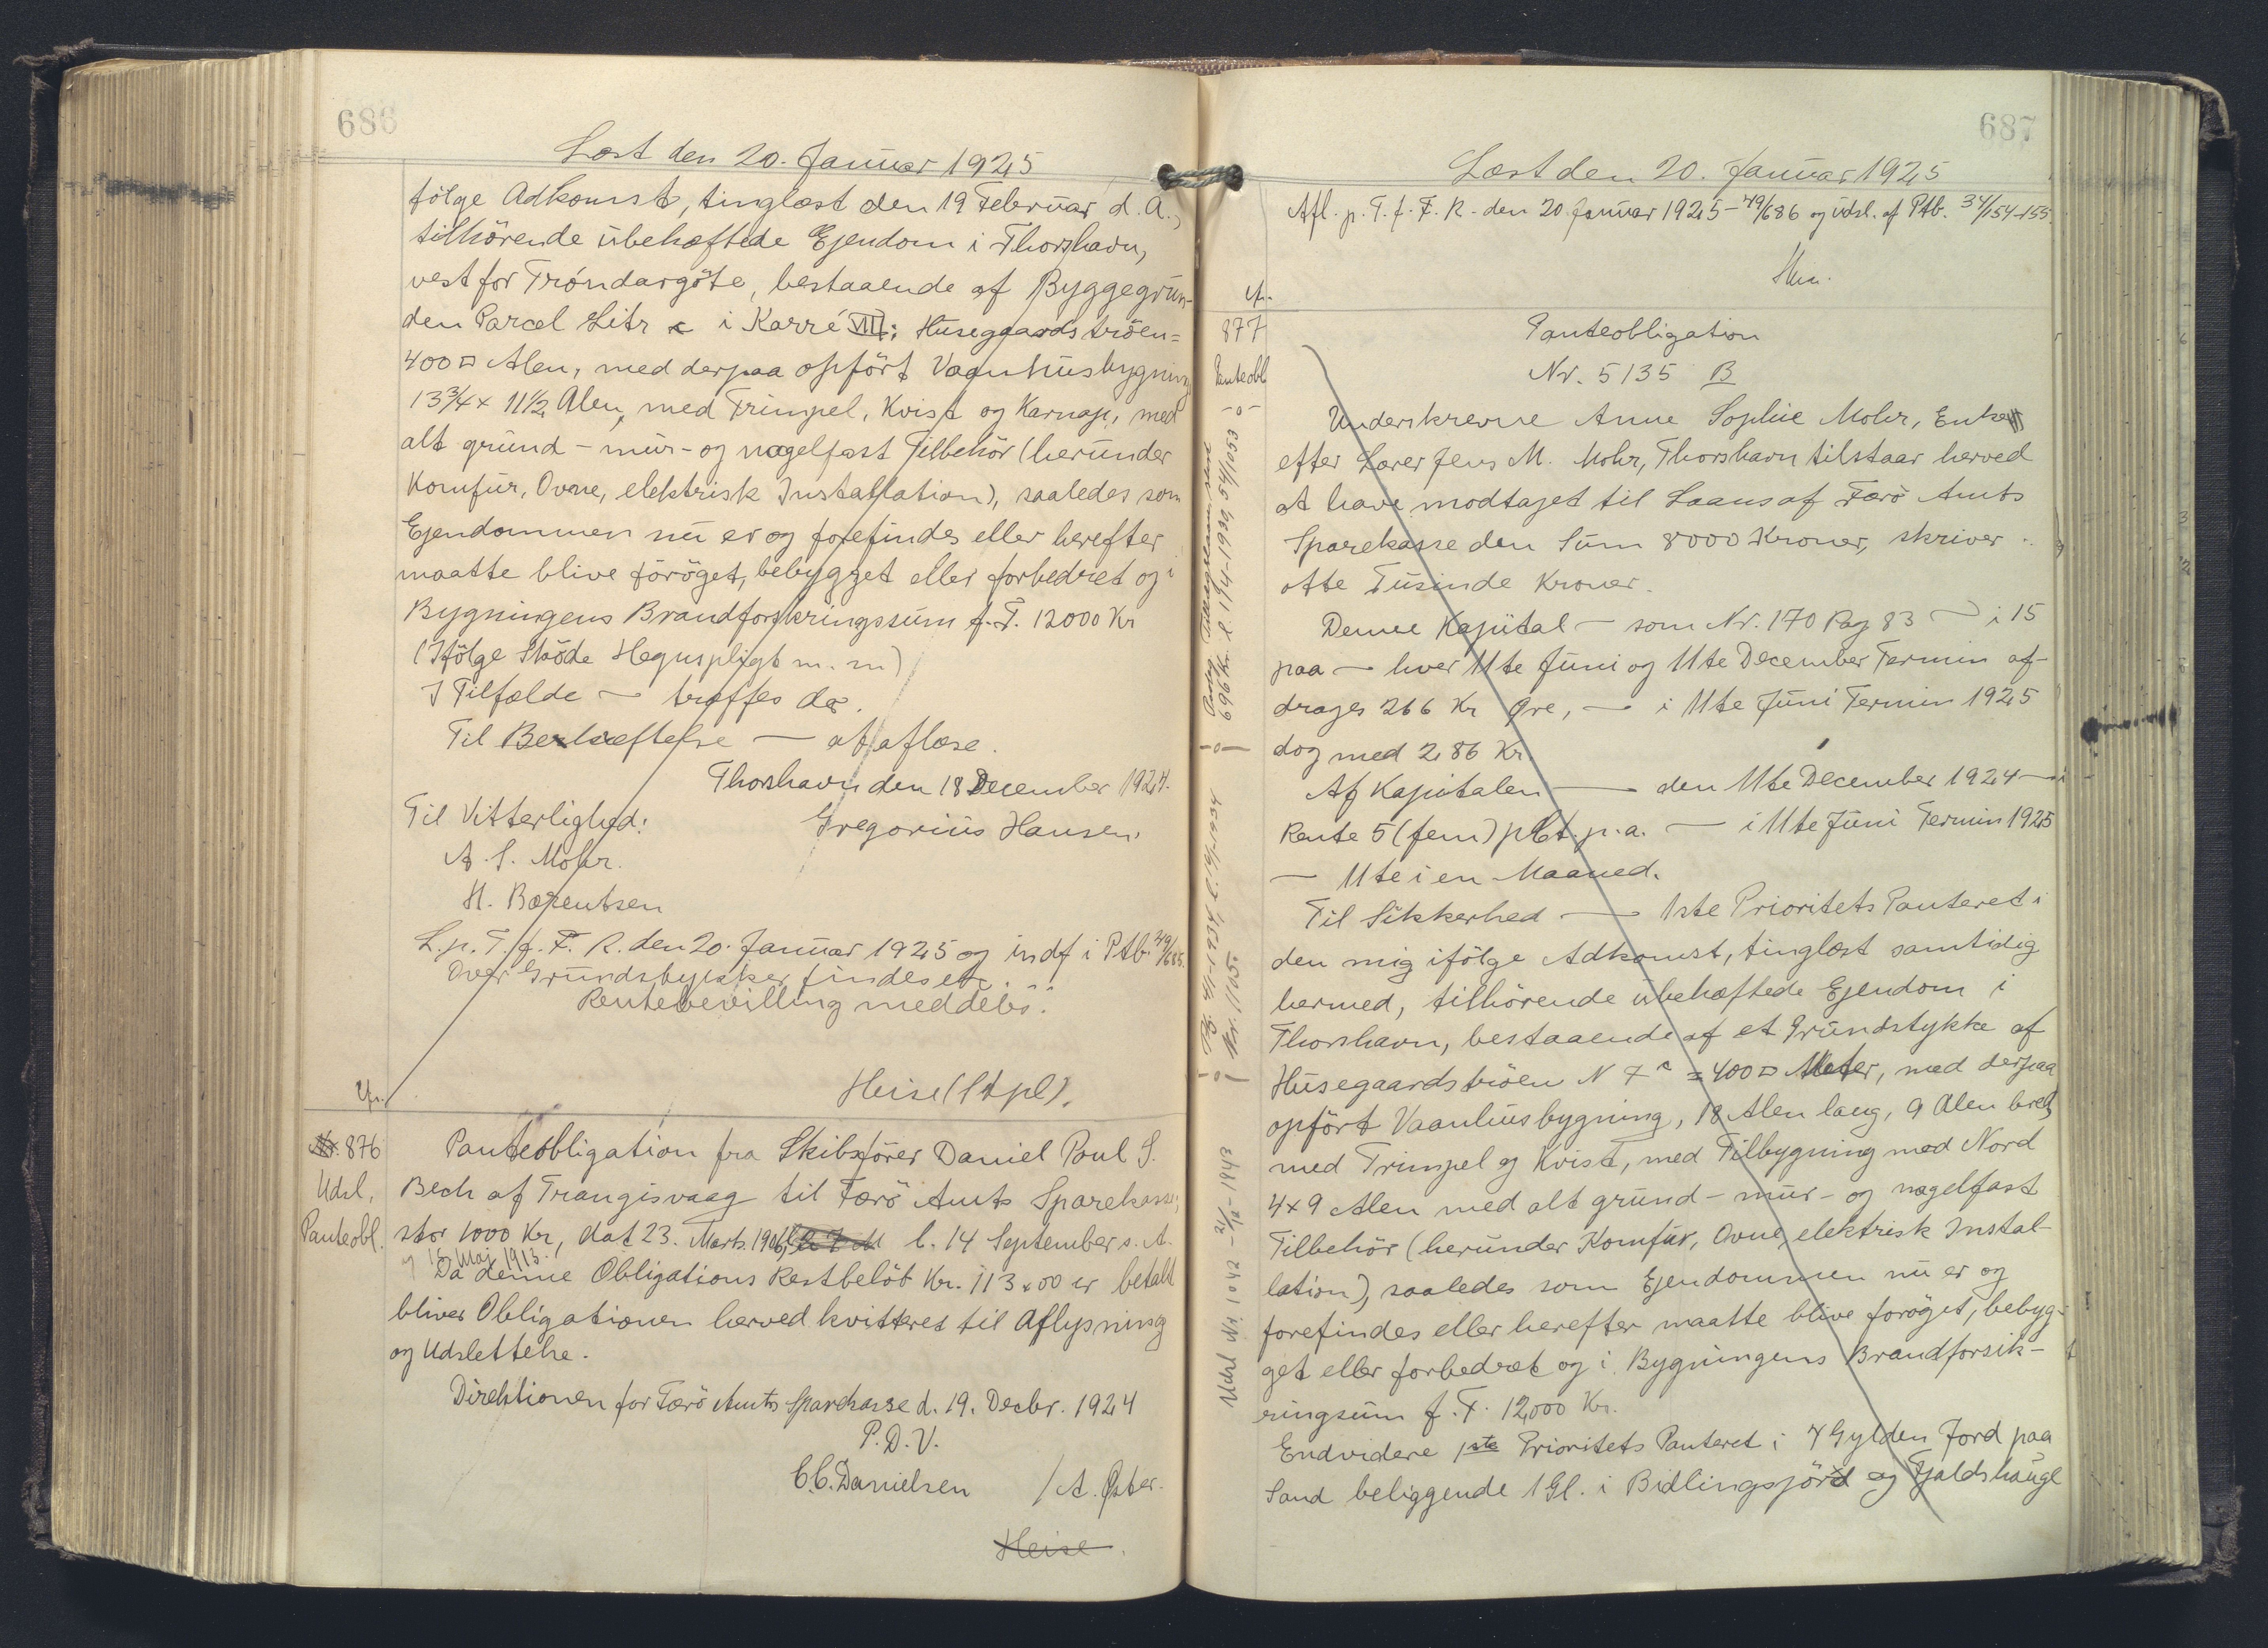 686
Læst den 20. Januar 1925
følge Adkomst, tinglæst den 19 Februar d. A.,
tilhörende übehæftede Ejendom i Thorshavn,
vest for Tróndargöte, bestaaende af Byggegrun-
den Parcel Litr c i Karré VIII: Husegaardströen=
400□ Alen, med derpaa opfört Vaanhusbygning
13¾ x 11½ Alen, med Trimpel, Kvist og Karnap, med
alt grund- mur- og nagelfast Tilbehör (herunder
Komfur, Ovne, elektrisk Installation), saaledes som
Ejendommen nu er og forefindes eller herefter
maatte blive foröget, bebygget eller forbedret og i
Bygningens Brandforsikringssum f. T. 12000 Kr
(Ifölge Sköde Hegnspligt m. m)
I Tilfælde — træffes da.
Til Bekræftelse — at aflæse.
Thorshavn den 18 December 1924.
Til Vitterlighed: Gregorius Hansen.
A. S. Mohr.
H. Bærentsen
L. p. T. f. F. R. den 20. Januar 1925 og indf i Ptb. 49/685.
Over Grundstykket findes en
Rentebevilling meddelës.
Heise (Stpl).
Nr. 876
Udsl.
Panteobl.
Panteobligation fra Skibsfører Daniel Poul S.
Bech af Trangisvaag til Færö Amts Sparekasse,
stor 1000 Kr, dat 23. Marts 1906, l. 14 September s. A.
og 15 Maj 1913.
Da denne Obligations Restbelöb Kr. 113.00 er betalt
bliver Obligationen herved kvitteret til Aflysning
og Udslettelse.
Direktionen for Færö Amts Sparekasse d. 19. Decbr. 1924
P. D. V.
C.C. Danielsen / A. Öster.
Heise.
687
Læst den 20. Januar 1925
Afl. p. T. f. F. R. den 20 Januar 1925 - 49/686 og udsl. af Ptb. 34/154-155.
877
Panteobl
-o-
Panteobligation
Nr. 5135 B
Underskrevne Anne Sophie Mohr, Enke
efter Lærer Jens M. Mohr, Thorshavn tilstaar herved
at have modtaget til Laans af Færö Amts
Sparekasse den Sum 8000 Kroner, skriver
otte Tusinde Kroner.
Denne Kapital — som Nr. 170 Pag 83 — i 15
paa — hver 11te Juni og 11te December Termin af-
drages 266 Kr Øre, — i 11te Juni Termin 1925
dog med 286 Kr.
Af Kapitalen — den 11te December 1924 — i
Rente 5 (fem) pCt. p. a. — i 11te Juni Termin 1925
— 11te i en Maaned.
Til Sikkerhed — 1ste Prioritets Panteret i
den mig ifölge Adkomst, tinglæst samtidig
hermed, tilhörende ubehæftede Ejendom i
Thorshavn, bestaaende af et Grundstykke af
Husegaardströen N 7 c = 400□ Meter, med derpaa
opfört Vaanhusbygning, 18 Alen lang, 9 Alen bred,
med Trimpel og Kvist, med Tilbygning mod Nord
4x9 Alen med alt grund- mur- og nagelfast
Tilbehör (herunder Komfur, Ovne, elektrisk Instal-
lation), saaledes som Ejendommen nu er og
forefindes eller herefter maatte blive foröget, bebyg-
get eller forbedret og i Bygningens Brandforsik-
ringsum f. T. 12,000 Kr.
Endvidere 1ste Prioritets Panteret i 7 Gylden Jord paa
Sand beliggende 1 Gl. i Bidlingsjörd og Fjaldshaugl